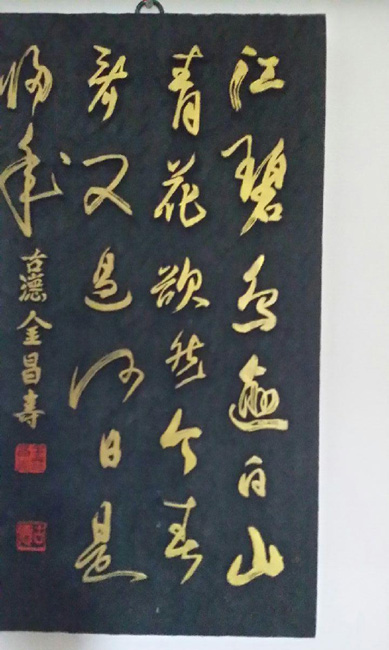 江碧鳥逾白山
青花欲然今春
看又過何日是
歸年
古德金昌壽